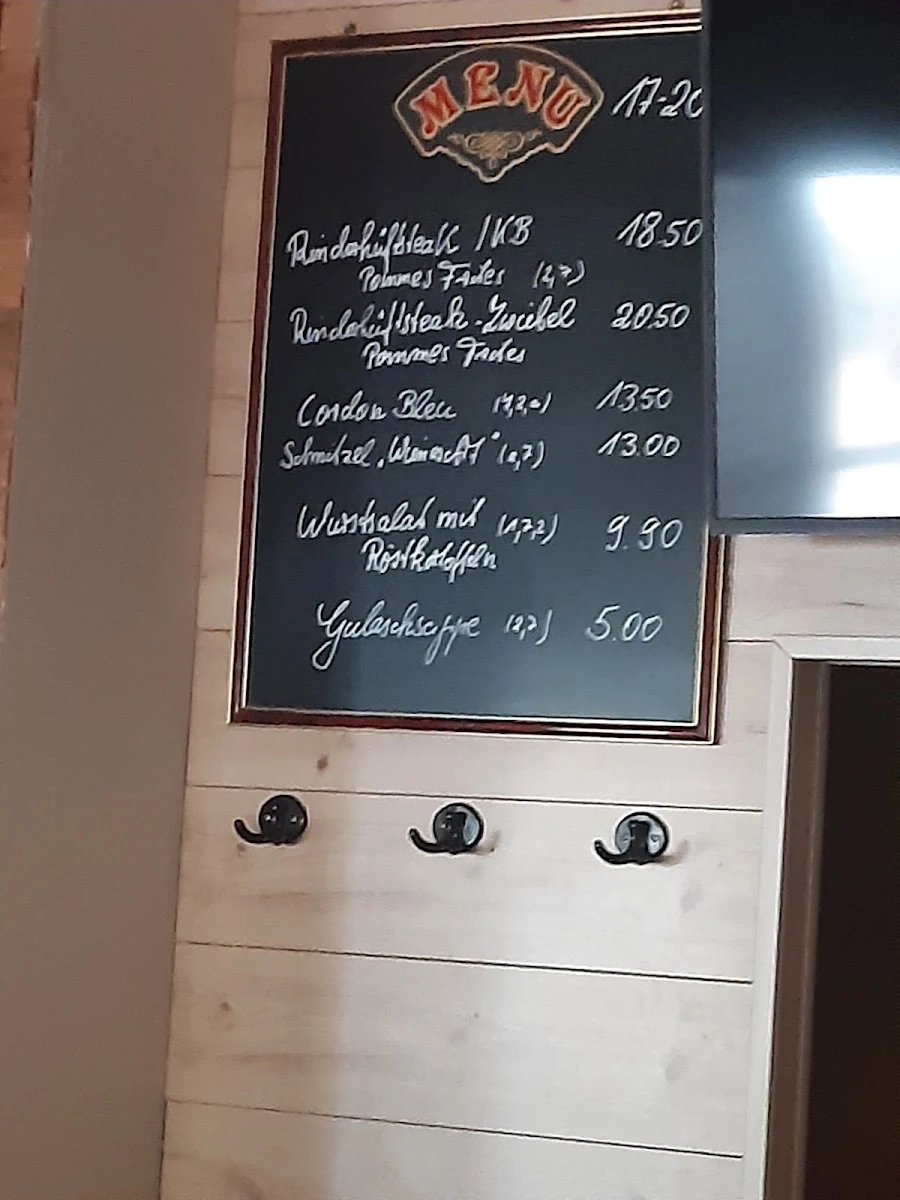 MENU 17-20
Rinderhüftsteak /KB 18.50
Pommes Frites
Rinderhüftsteak-Zwiebel 20.50
Pommes Frites
Cordon Bleu 13.50
Schnitzel "Wienerart" 13.00
Wurstsalat mit 9.90
Röstkatoffeln
Gulaschsuppe 5.00